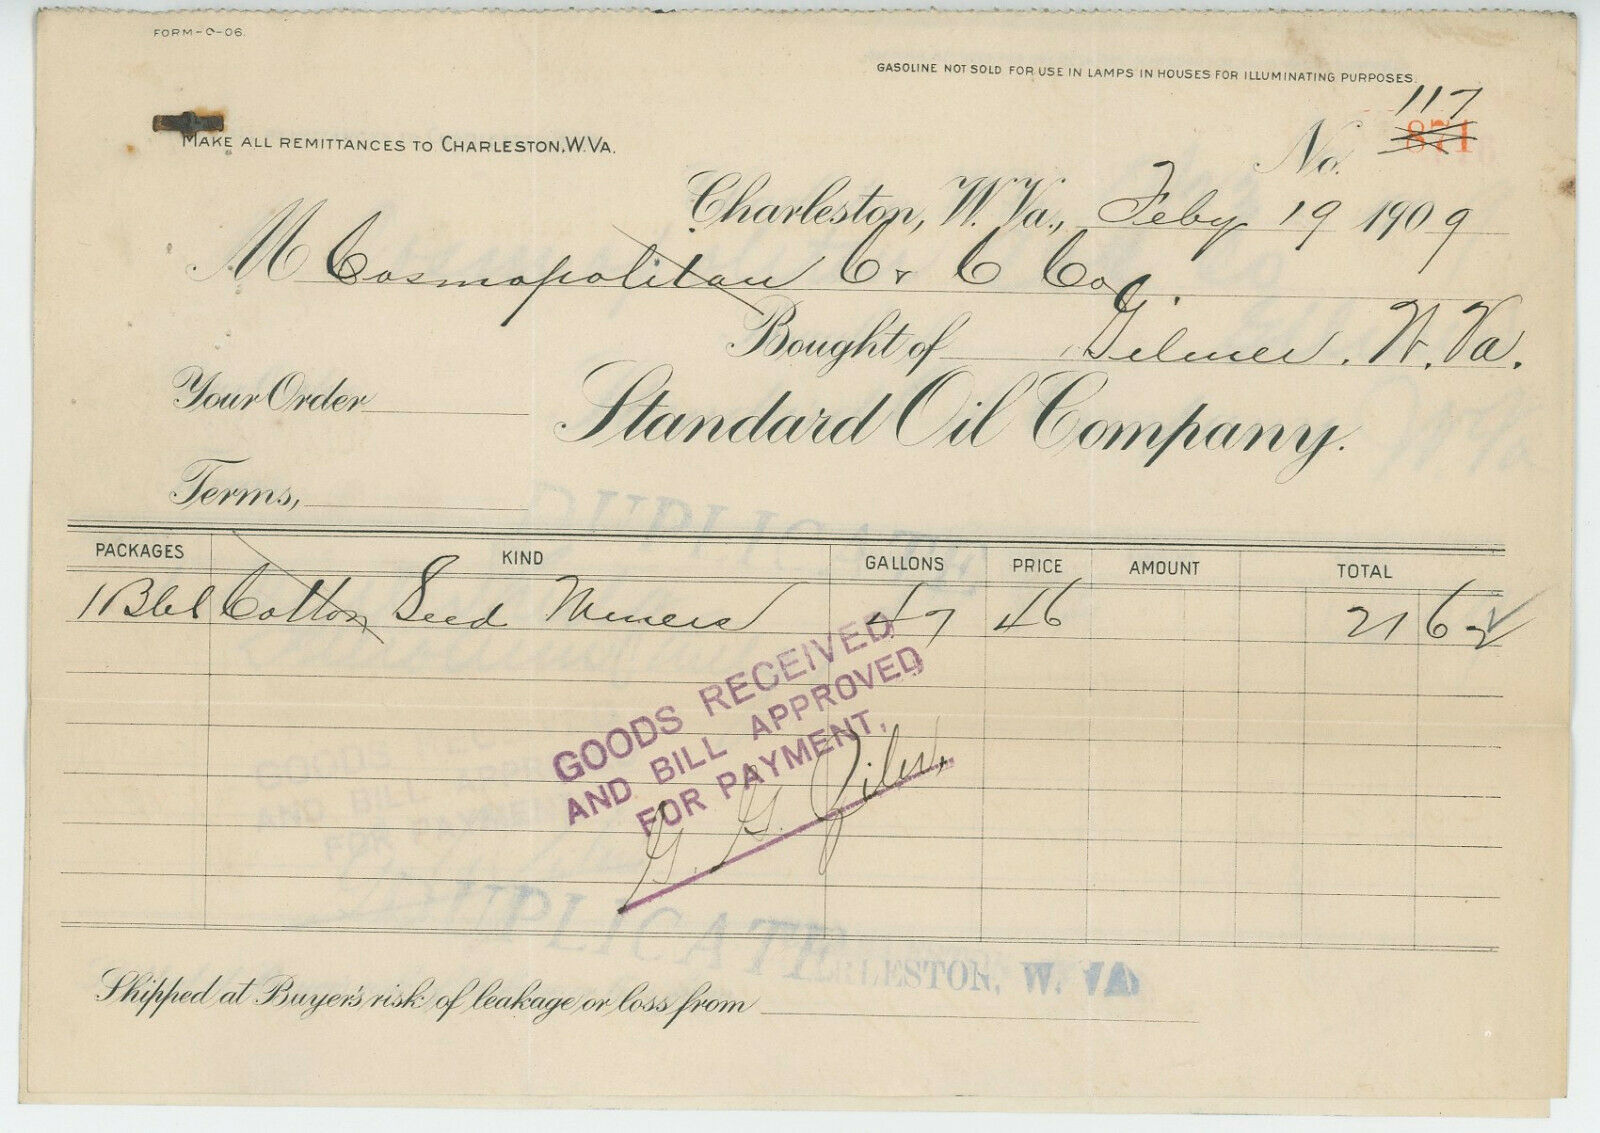 FORM-O-06.
GASOLINE NOT SOLD FOR USE IN LAMPS IN HOUSES FOR ILLUMINATING PURPOSES.
117
MAKE ALL REMITTANCES TO CHARLESTON, W. VA.
No. 871
Charleston, W. Va., Feby 19 1909
M Cosmopolitan C & C Co.
Bought of Gilmer, W. Va.
Your Order
Standard Oil Company.
Terms,
DUPLICATE
PACKAGES KIND GALLONS PRICE AMOUNT TOTAL
1 Bbl Cotton Seed Miners 47 46 21 62
GOODS RECEIVED
AND BILL APPROVED
FOR PAYMENT.
G. G.
DUPLICATE
CHARLESTON, W. VA
Shipped at Buyer's risk of leakage or loss from